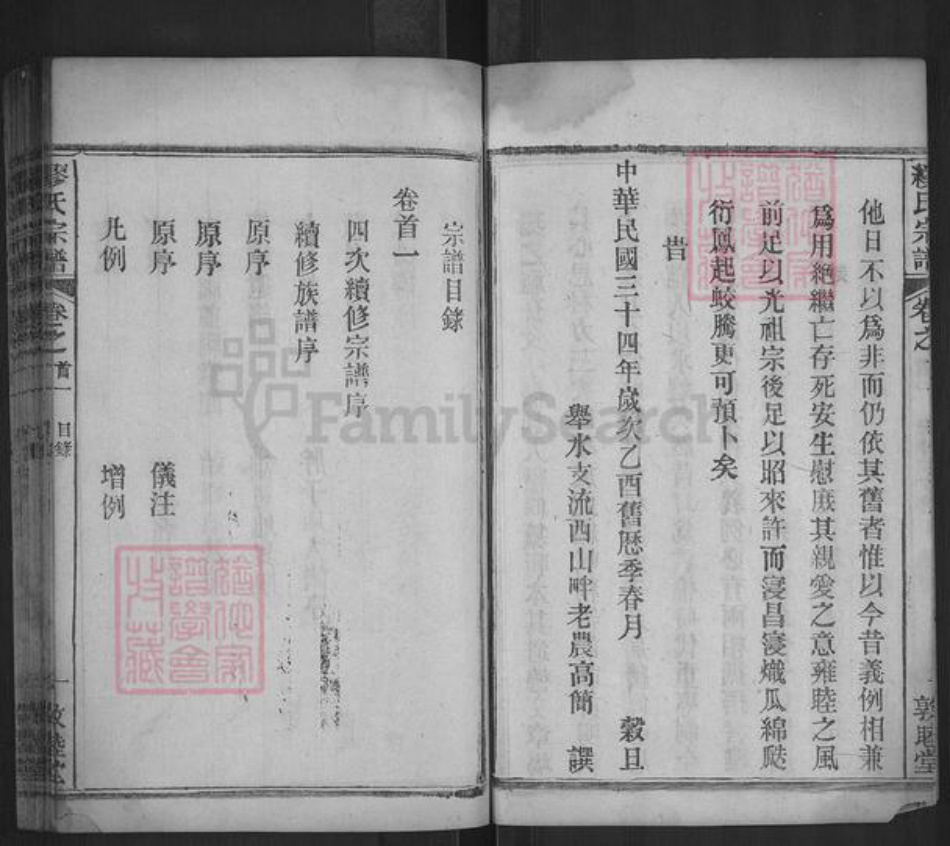 繆氏宗譜
卷之
敦睦堂
他日不以爲非而仍依其舊者惟以今昔義例相兼
爲用絕繼亡存死安生慰庶其親愛之意雍睦之風
前足以光祖宗後足以昭來許而寖昌寖熾瓜綿瓞
衍鳳起蛟騰更可預卜矣
昔
中華民國三十四年歲次乙酉舊曆季春月 穀旦
舉水支流西山畔老農高簡 譔
宗譜目錄
卷首一
四次續修宗譜序
續修族譜序
原序
原序
原序 儀注
凡例 增例
繆氏宗譜
卷之首
目錄
一
敦睦堂
FamilySearch